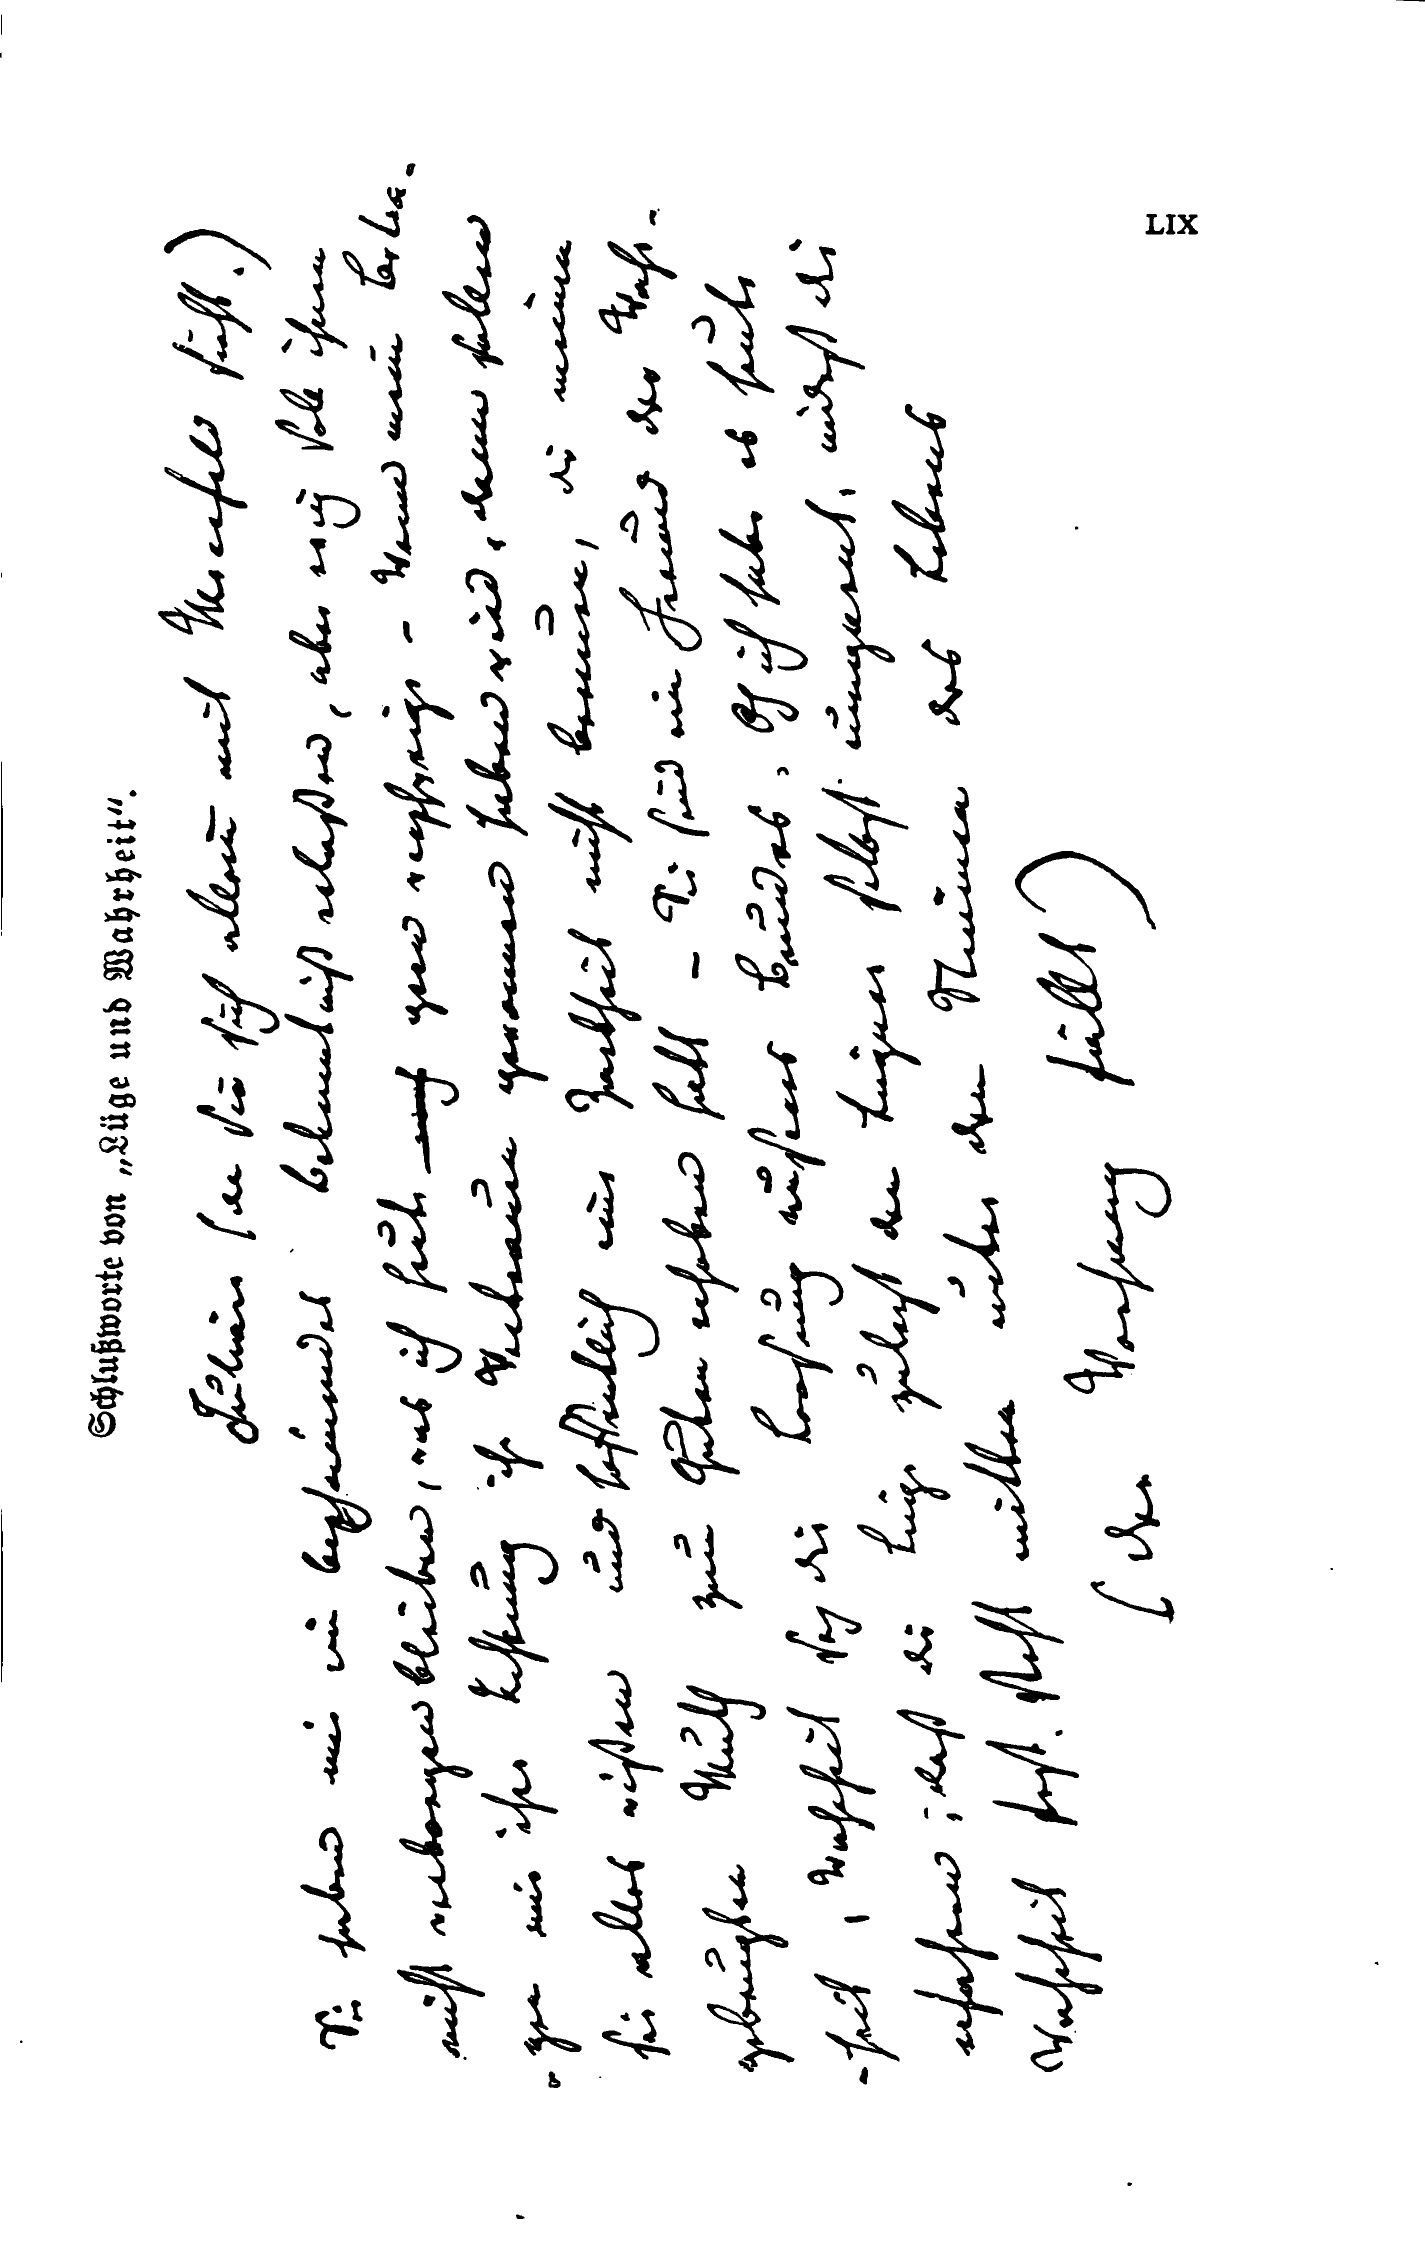 Schlußworte von „Lüge und Wahrheit“.
Juliane (da sie sich allein mit Meerfeld sieht.)
Sie haben mir ein beschämendes Bekentniß erlaßen, aber auch soll ihnen
nicht verborgen bleiben, was ich heute noch gern verschwiege – Wenn mein Betra-
-gen mir ihre Achtung ihr Vertrauen gewonnen haben wird, dann sollen
sie alles wißen und hoffentlich eine Zartheit nicht bereuen, die meinen
gebeugten Muth zum Guten erhoben hat – Sie sind ein Freund der Wahr-
-heit, Wahrheit sey die Losung unseres Bundes. Ach ich habe es heute
erfahren, daß die Lüge zuletzt den Lügner selbst umgarnt, indeß die
Wahrheit fest steht mitten unter den des Lebens
(der Vorhang fällt)
LIX